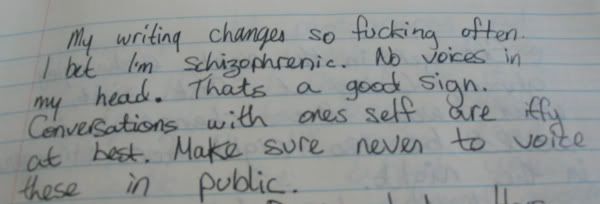 My writing changes so fucking often.
I bet I'm schizophrenic. No voices in
my head. Thats a good sign.
Conversations with ones self are iffy
at best. Make sure never to voice
these in public.